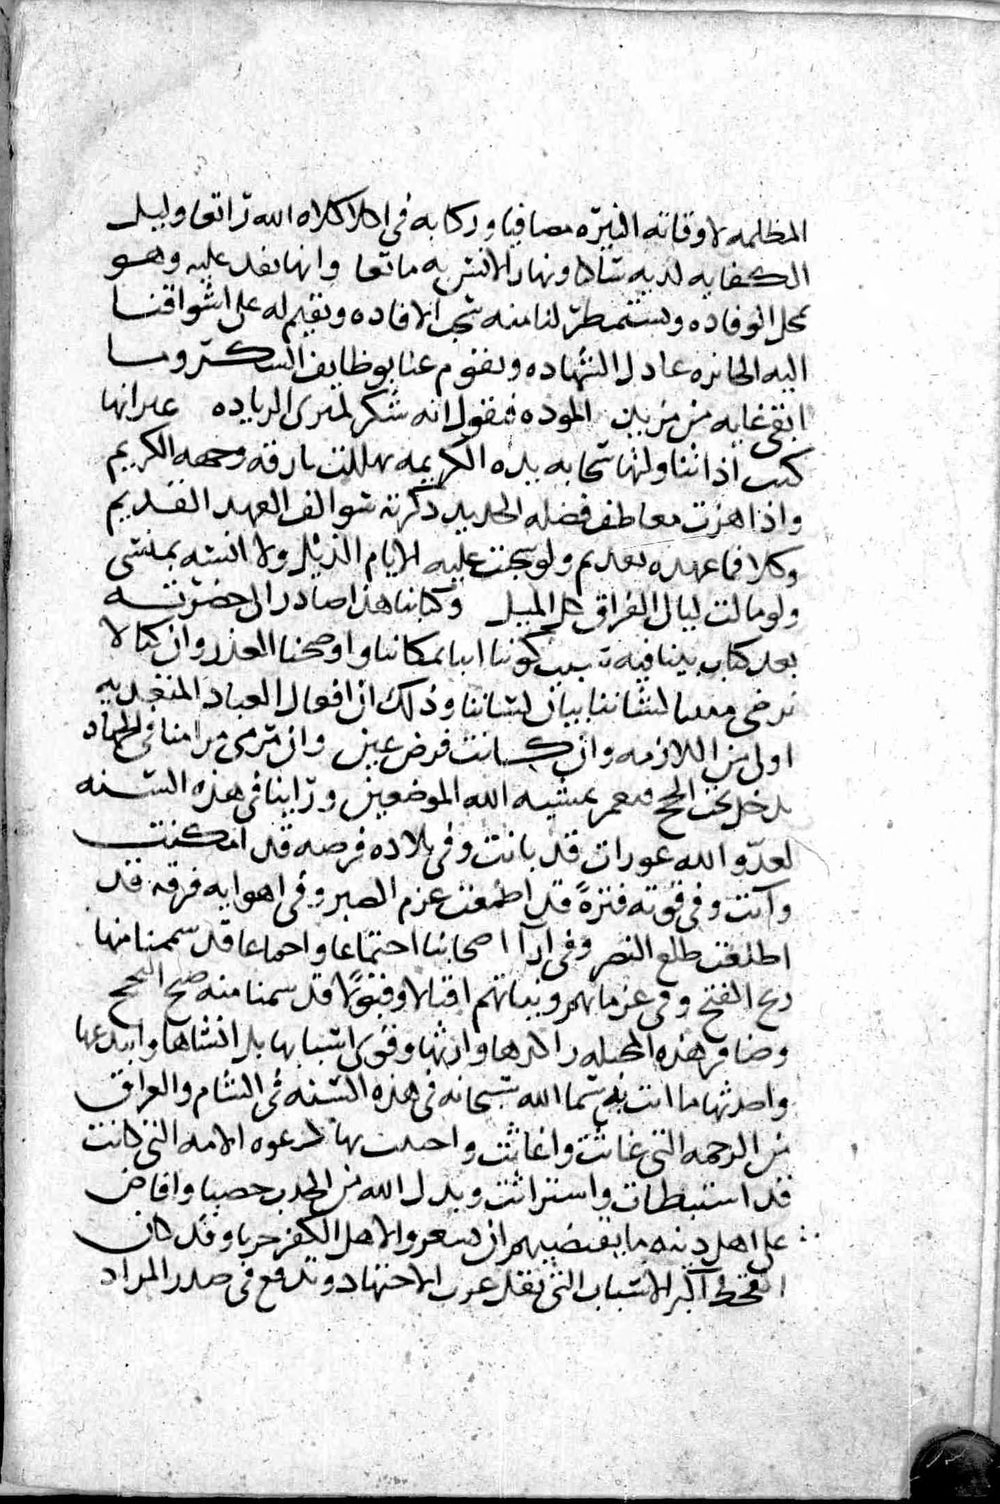 المظلمه لاوقاته النيّره مصافيا وركابه فى اكلا كلاه الله راتعا وليل
الكفايه لديه شاكا ونهار الانتس به ماتعا وانها نفد عليه وهو
محل الوفاده ونستمطر لنا منه سحب الافاده ونقيم له على اشواقنا
اليه الحائزه عادل الشهاده ونقوم عنا بوظايف الشكر وما
ابقى غايه من مزيد الموده فنقول انه شكر لمنرى الرياده غير انها
كتب اذا ثناولتها سحابه يده الكريمه تهللت بارقه وجهه الكريم
واذا هزت معاطف فضله الجديد ذكرته سوالف العهد القديم
وكلا فما عهده بعديم ولو سحبت عليه الايام الذيل ولا انسه بمنسى
ولو مالت ليال الفراق كل الميل وكتابنا هذا صادر الى حضرته
بعد كتاب بينا فيه سبب كوننا اسا بمكاننا واوضحنا العذر وان كنا لا
نرضى لشاننا بيان لساننا وذلك ان افعال العباد المتعديه
اولى من اللازمه وان كانت فرض عين وان مرمى مرامنا فى الجهاد
يدخل تحت الحج فنعمر بمشيه الله الموضعين وراينا فى هذه السنه
لعدو الله عورات قد بانت وفى بلاده فرصه قد امكنت
وآنت وفى قوته فترةً قد اطمعت عزم الصبر وفى اهوايه فرقه قد
اطلعت طلع النصر وفى ارآا اصحابنا اجتماعا واجماعا قد شممنا منها
ريح الفتح وفى عزماتهم ونياتهم اقبالا وقبولا قد شمنا منه صبح النجح
وضافر هذه المخيله واكدها وارثها وقوى اسبابها بل انشاها وابدعها
واحدثها ما انت به سما الله سبحانه فى هذه السنه فى الشام والعراق
من الرحمه التى غاثت واغاثت واجيبت بها دعوه الامه التى كانت
قد استبطات واستراثت وبدل الله من الجدب خصبا وافاض
على اهل دينه ما يقتضيهم ان يسعروا لاهل الكفر حربا وقد كان
القحط آكبر الاسباب التى تقل غرب الاجتهاد وتدفع فى صدر المراد